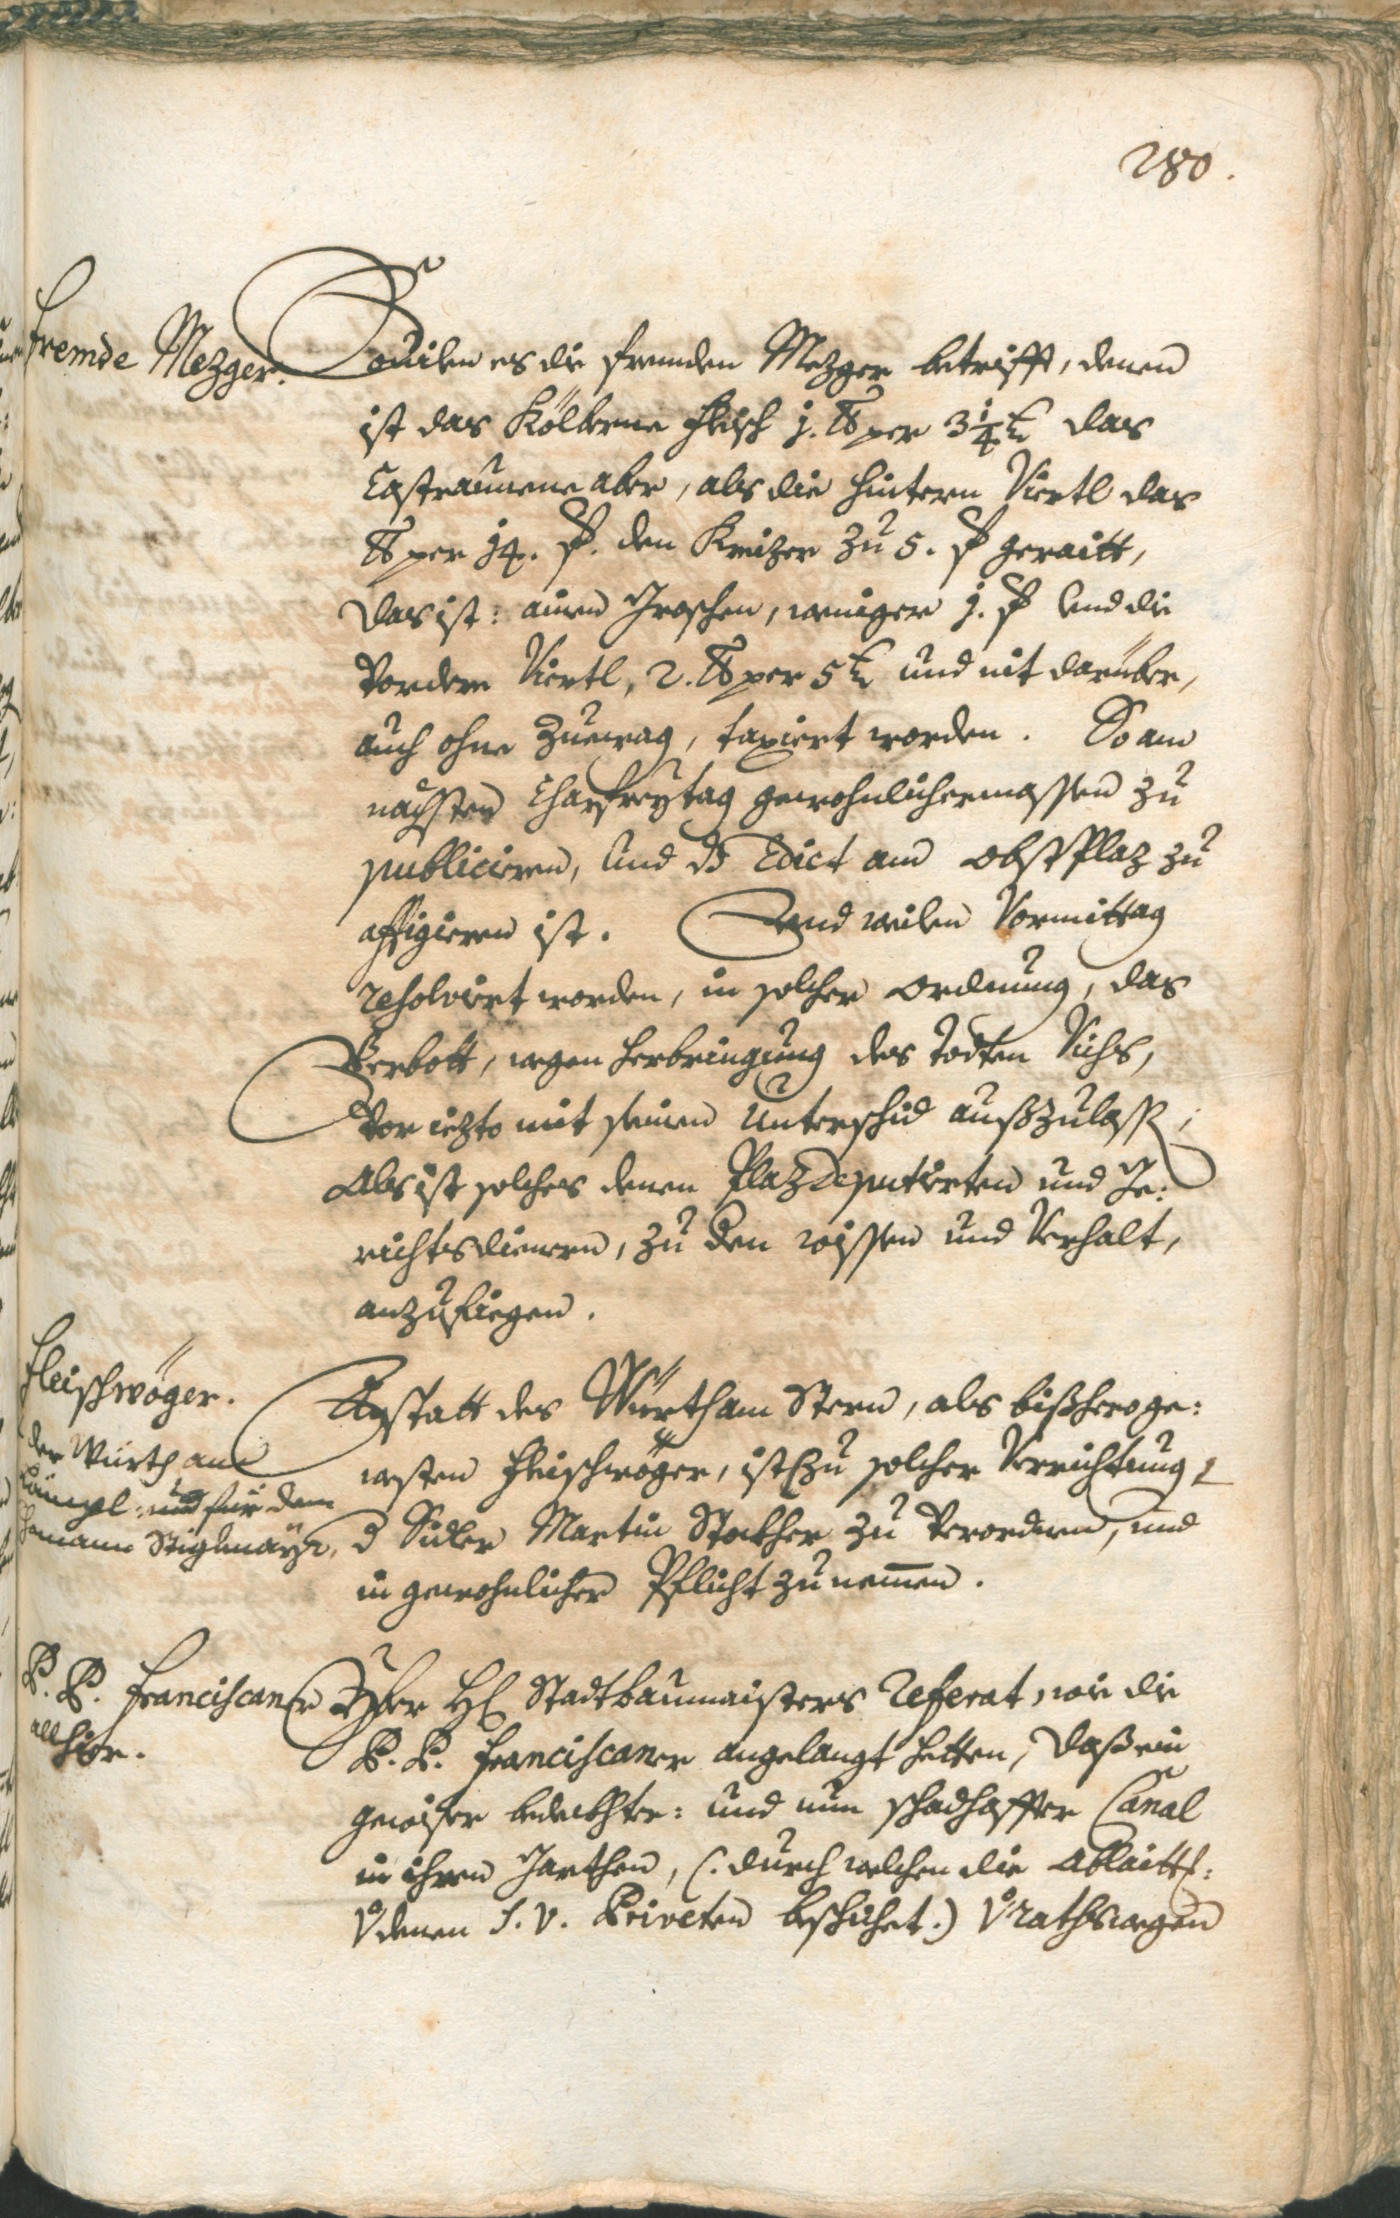 280.
Fremde Mezger.
Souilen es die frembden Mezger betrifft, denen
ist das Kölberne Fleisch j. ℔ per 3 1/4 xr das
Castraunene aber, als die hintern Viertl das
℔ per 14. ₰. den Kreizer zu 5. ₰ geraitt,
das ist: ainen Groschen, weniger j. ₰ und die
Vordern Viertl, 2. ℔ per 5 xr und nit darüber,
auch ohne Zuewag, taxiert worden. So am
nachsten Charfreytag gewohnlichermassen zu
publicieren, und dz Edict am ObstPlaz zu
affigieren ist. Und weilen Vormittag
resolviert worden, in solcher Ordnung, das
Verbott, wegen herbringung des todten Vichs,
Vor iezto mit seinen Unterschid außzulassen,
Als ist solches denen Plaz Deputierten und Ge:
richtsdienern, zu den wissen und Verhalt,
anzufiegen.
Fleischwöger.
der Würth am
Lämpl: und für dem
Hemann Stiglmayr,
Anstatt des Würth am Stern, als bißhero ge:
westen Fleischwöger, ist zu solcher Verrichtung,
d Sidler Martin Stockher zu Verordnen, und
in gewohnlicher Pflicht zu nemmen.
P. P. Franciscaner
allhier.
Yber H Stadtbaumaisters Referat, wie die
P. P. Franciscaner angelangt hetten, daß ein
gewiser bedeckhter: und nun schadhaffter Canal
in ihren Garthen, (: durch welchen die Ablaittung:
V denen S. V. Priveten beschichet.) V Raths wegen